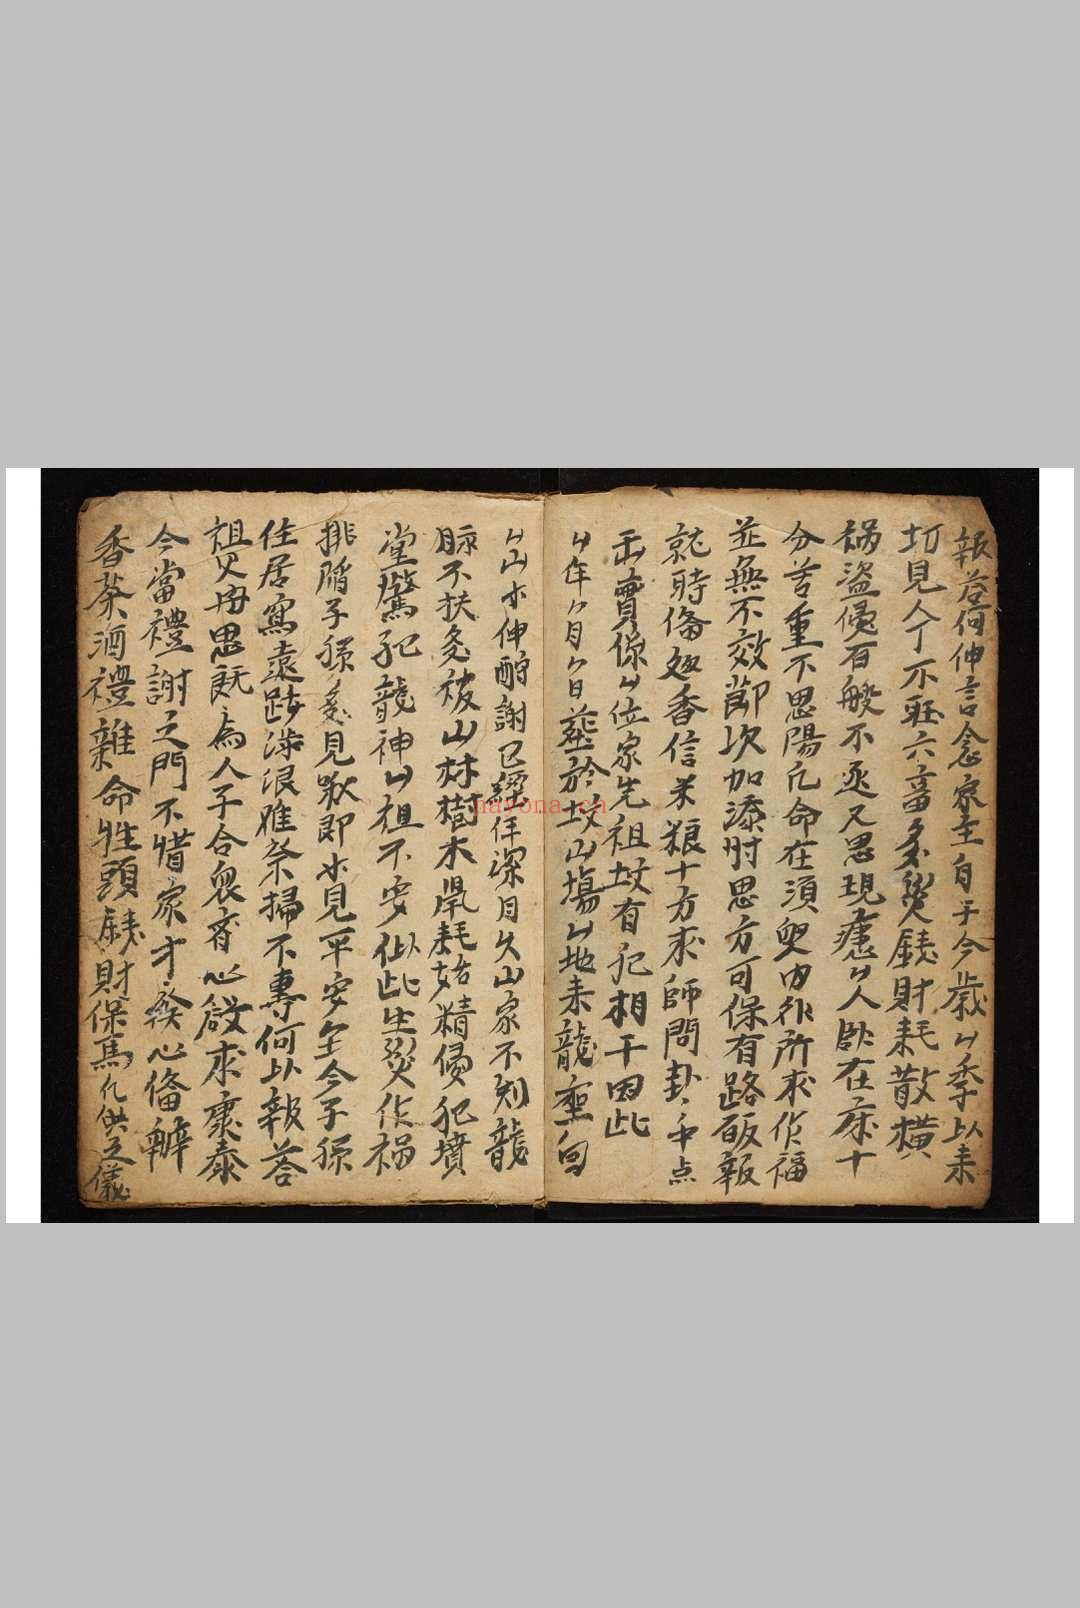 報答何伸言念家主自于今歲厶季以来
切見人丁不旺六畜多災銭財耗散横
禍盗侵百般不丞又思現患厶人卧在床十
分苦重不思陽凢命在須臾内外所求作福
並無不效節次加添肘思方可保有路皈報
就時俻処香信米粮十方求師問卦卦中点
出賣係厶位家先祖坟有犯相干因此
厶年厶月厶日葬於坟山塲厶地来龍座向
厶山未伸酧謝已經年深月久山家不利龍
脉不扶免被山林樹木鼠耗姑精傷犯墳
堂驚犯龍神厶祖不安似此生災作禍
排陷子孫多見歎即未見平安至今子孫
住居寫遠跋涉浪难祭掃不專何以報荅
祖父毋恩既為人子合衆齊心啟求康泰
今當禮謝之門不惜家才發心俻辦
香茶酒禮雜命牲頭銭財保馬凡供之儀
navona.cn